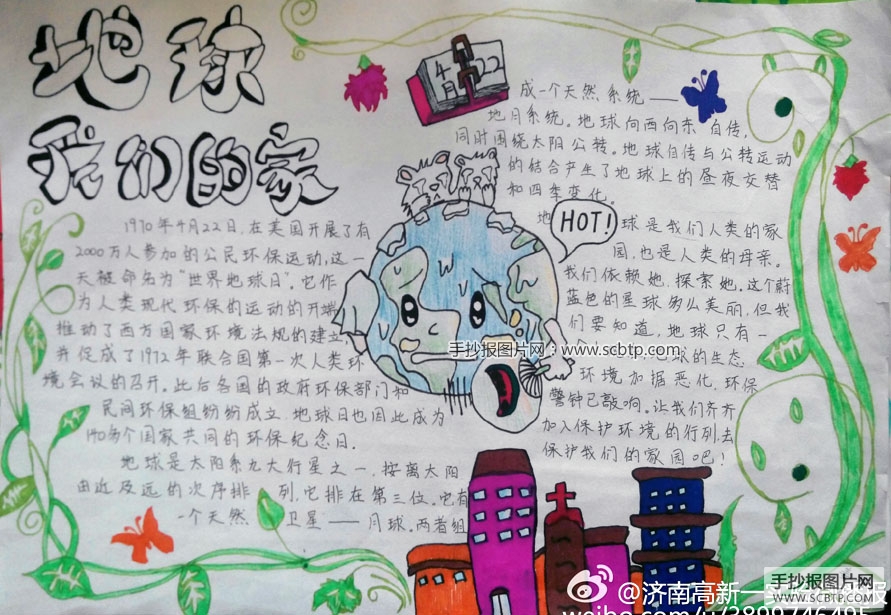 地球
我们的家
1970年4月22日,在美国开展了有
2000万人参加的公民环保运动,这一
天被命名为“世界地球日”。它作
为人类现代环保的运动的开端
推动了西方国家环境法规的建立,
并促成了1972年联合国第一次人类环
境会议的召开。此后各国的政府环保部门和
民间环保组纷纷成立,地球日也因此成为
140多个国家共同的环保纪念日。
地球是太阳系九大行星之一,按离太阳
由近及远的次序排列,它排在第三位。它有
一个天然卫星——月球。两者组
4月22
成一个天然系统——
地月系统。地球向西向东自传,
同时围绕太阳公转。地球自传与公转运动
的结合产生了地球上的昼夜交替
和四季变化。
HOT!
地球是我们人类的家
园,也是人类的母亲。
我们依赖她,探索她。这个蔚
蓝色的星球多么美丽,但我
们要知道,地球只有一
的生态
环境加据恶化,环保
警钟已敲响。让我们齐齐
加入保护环境的行列,去
保护我们的家园吧!
手抄报图片网:www.scbtp.com
@济南高新一
手抄报图片网
WWW.SCBTP.COM